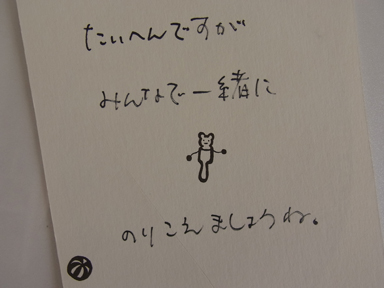 たいへんですが
みんなで一緒に
のりこえましょうね。